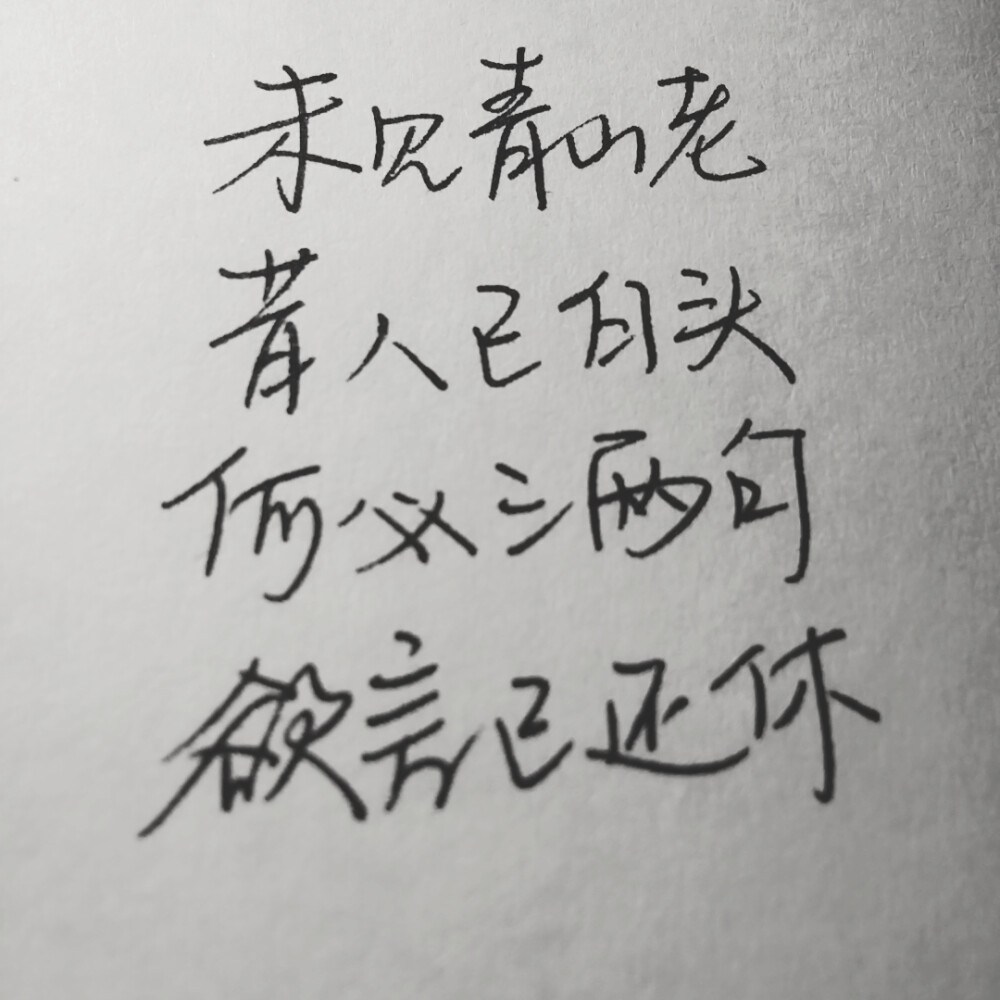 未见青山老
昔人已白头
何必三两句
欲言已还休